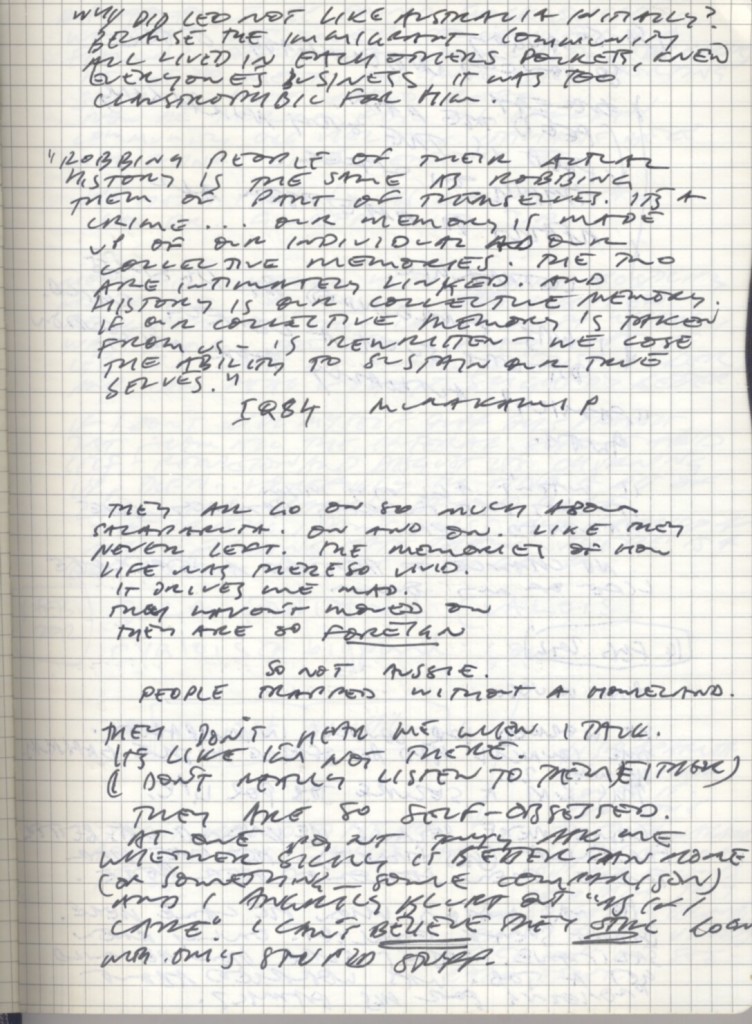 WHY DID LEO NOT LIKE AUSTRALIA INITIALLY?
BECAUSE THE IMMIGRANT COMMUNITY
ALL LIVED IN EACH OTHERS POCKETS, KNEW
EVERYONE'S BUSINESS. IT WAS TOO
CLAUSTROPHOBIC FOR HIM.
"ROBBING PEOPLE OF THEIR ACTUAL
HISTORY IS THE SAME AS ROBBING
THEM OF PART OF THEMSELVES. ITS A
CRIME... OUR MEMORY IS MADE
UP OF OUR INDIVIDUAL AD OUR
COLLECTIVE MEMORIES. THE TWO
ARE INTIMATELY LINKED. AND
HISTORY IS OUR COLLECTIVE MEMORY.
IF OUR COLLECTIVE MEMORY IS TAKEN
FROM US - IS REWRITTEN - WE LOSE
THE ABILITY TO SUSTAIN OUR TRUE
SELVES."
IQ84 MURAKAMI P
THEY ALL GO ON SO MUCH ABOUT
SALAPARUTA. ON AND ON. LIKE THEY
NEVER LEFT. THE MEMORIES OF HOW
LIFE WAS THERE SO VIVID.
IT DRIVES ME MAD.
THEY HAVEN'T MOVED ON
THEY ARE SO FOREIGN
SO NOT AUSSIE.
PEOPLE TRAPPED WITHOUT A HOMELAND.
THEY DON'T HEAR ME WHEN I TALK.
ITS LIKE I'M NOT THERE.
(I DON'T REALLY LISTEN TO THEM EITHER)
THEY ARE SO SELF-OBSESSED.
AT ONE POINT THEY ASK ME
WHETHER SICILY IS BETTER THAN ROME
(OR SOMETHING - SOME COMPARISON)
AND I ANGRILY BLURT OUT "AS IF I
CARE." I CAN'T BELIEVE THEY STILL
WITH THIS STUPID STUFF.